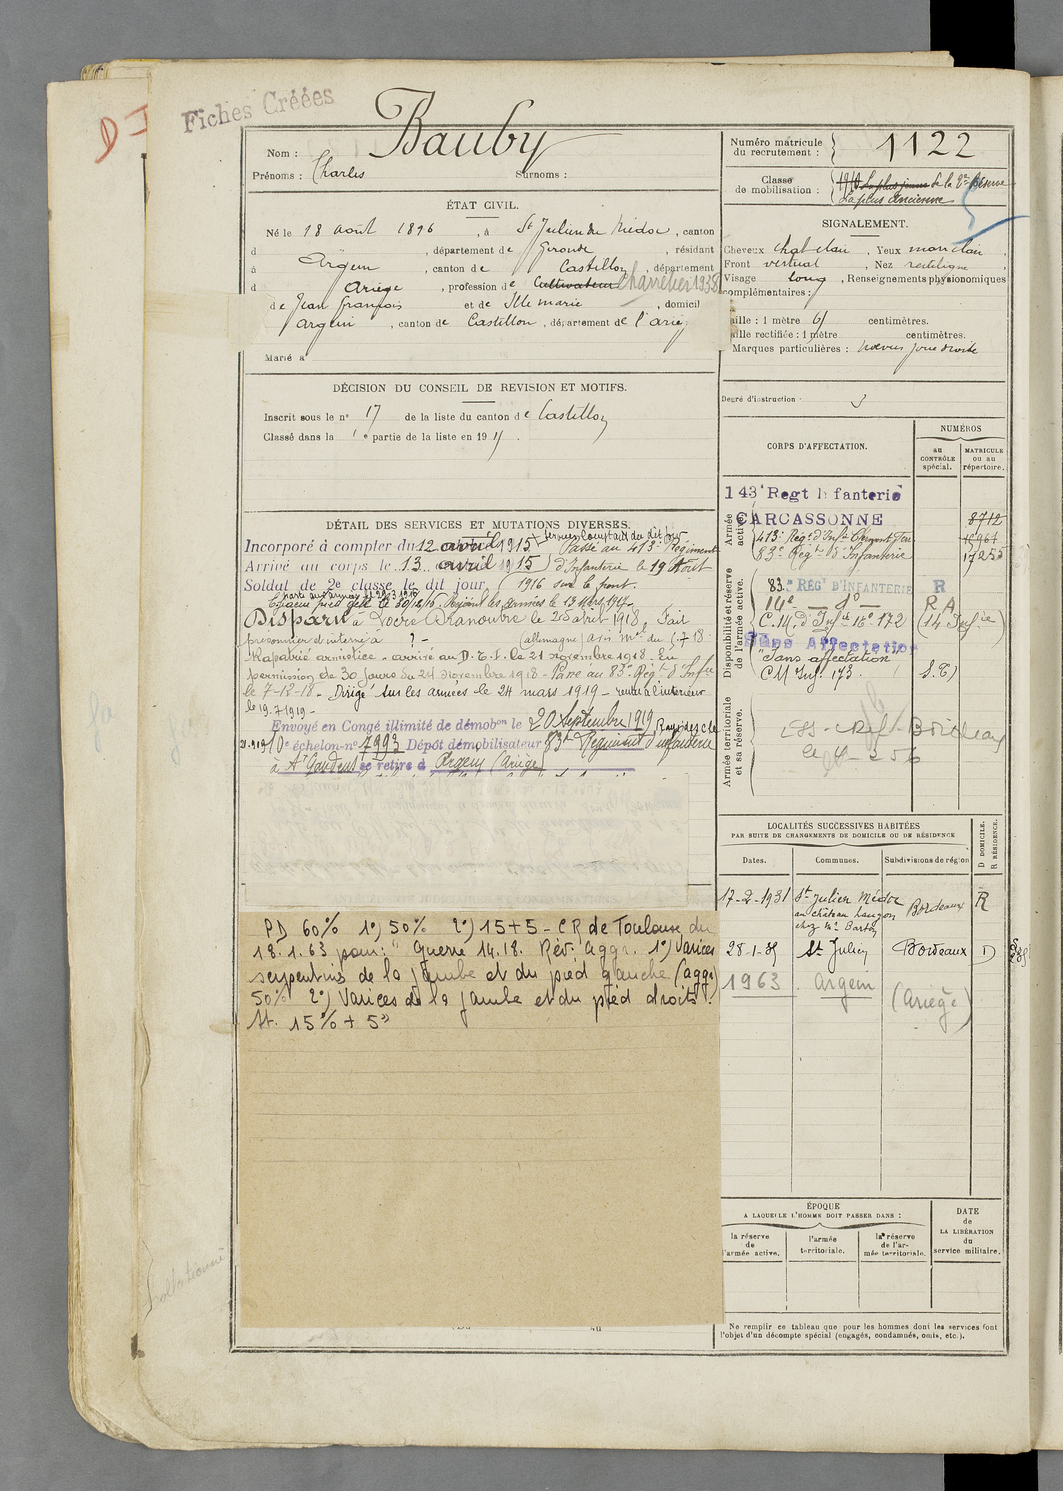 Fiches Créées
Bauby
Nom :
Prénoms : Charles Surnoms :
Numéro matricule du recrutement : 1122
Classe de mobilisation : 1910 La plus jeune de la 2e Réserve
La plus ancienne
ÉTAT CIVIL.
Né le 18 août 1896, à St Julien du Médoc, canton
d , département de Gironde, résidant
à Argein, canton de Castillon, département
d Ariège, profession de Cultivateur Chancelier 1938
de Jean François et de Ille marie, domicil
Argein, canton de Castillon, département de l'arieg
Marié à
SIGNALEMENT.
Cheveux chat clair, Yeux mar clair,
Front vertical, Nez rectiligne,
Visage long, Renseignements physionomiques
complémentaires :
aille : 1 mètre 61 centimètres.
aille rectifiée : 1 mètre centimètres.
Marques particulières : noevus joue droite
Degré d'instruction : 3
DÉCISION DU CONSEIL DE REVISION ET MOTIFS.
Inscrit sous le n° 17 de la liste du canton de Castillon
Classé dans la 1e partie de la liste en 1915.
DÉTAIL DES SERVICES ET MUTATIONS DIVERSES.
Incorporé à compter du 12 avril 1915 services comptant du dit jour Passé au 413e Régiment
Arrivé au corps le 13 avril 1915 d'Infanterie le 19 Août
Soldat de 2e classe le dit jour 1916 sur le front.
Parti aux armées
pied gelé le 30/12/16. Rejoint les armées le 13 Mars 1917.
Disparu à Locre le 25 avril 1918. Fait
prisonnier et interné à ? - (allemagne) avis mel du 5-7-18.
Rapatrié armistice - arrivé au D.T.I. le 21 novembre 1918. En
permission de 30 jours du 24 novembre 1918 - Passé au 83e Régt d'Infie
le 7-12-18 - Dirigé sur les armées le 24 mars 1919 - rentré à l'intérieur
le 19.7.1919 -
Envoyé en Congé illimité de démobon le 20 Septembre 1919
10e échelon-n° 7993 Dépôt démobilisateur 83e Régiment d'infanterie
à St Gaudens se retire à Argein (Ariège)
PD 60% 1°) 50% 2°) 15+5 - CR de Toulouse du
18.1.63 pour: "Guerre 14.18. Rév. Aggr. 1°) Varices
serpentins de la jambe et du pied gauche (aggr)
50% 2°) Varices de la jambe et du pied droits.
St. 15% + 5"
CORPS D'AFFECTATION.
NUMÉROS
au CONTRÔLE spécial.
MATRICULE ou au répertoire.
Armée active.
143e Regt Infanterie
CARCASSONNE 8712
413e Régt d'Infie Clermont Fer
83e Régt d'Infanterie 17255
Disponibilité et réserve de l'armée active.
83me RÉGt D'INFANTERIE R
14e — do — R.A
C.M. d'Infie n° 172 (14 Infie)
Sans Affectation
"Sans affectation"
CM Inf. 173. S.T)
Armée territoriale et sa réserve.
LOCALITÉS SUCCESSIVES HABITÉES
PAR SUITE DE CHANGEMENTS DE DOMICILE OU DE RÉSIDENCE
Dates. Communes. Subdivisions de région D DOMICILE. R RÉSIDENCE.
17-2-1931 St Julien Médoc Bordeaux R
au château Langoa
chez Mr Barton
28-1-35 St Julien Bordeaux D
1963 Argein (Ariège)
ÉPOQUE
A LAQUELLE L'HOMME DOIT PASSER DANS :
la réserve de l'armée active.
l'armée territoriale.
la réserve de l'armée territoriale.
DATE de LA LIBÉRATION du service militaire.
Ne remplir ce tableau que pour les hommes dont les services font
l'objet d'un décompte spécial (engagés, condamnés, omis, etc.).
Collationné